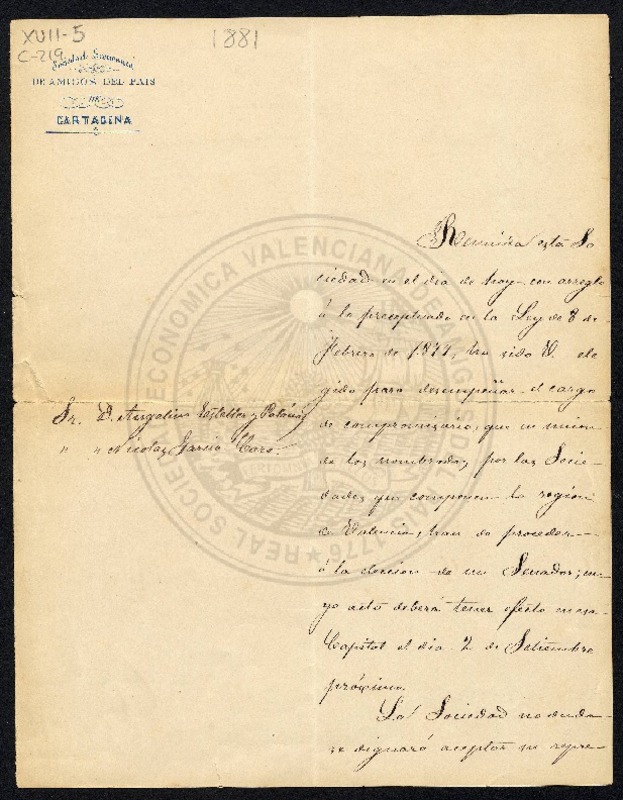 XVII-5
C-219
1881
Sociedad Económica
DE AMIGOS DEL PAIS
DE
CARTAGENA
Reunida esta So
ciedad en el dia de hoy con arreglo
á lo preceptuado en la Ley de 8 de
Febrero de 1877, ha sido V. ele
gido para desempeñar el cargo
de compromisario, que en union
de los nombrados, por las Socie-
dades que componen la region
de Valencia, han de proceder
á la eleccion de un Senador; cu-
yo acto deberá tener efecto en esa
Capital el dia 2 de Setiembre
próximo.
La Sociedad no duda
se dignará aceptar su repre-
Sr. D. Angelino y
" " Nicolas Garcia Caro.
REAL SOCIEDAD ECONOMICA VALENCIANA DE AMIGOS DEL PAIS 1776